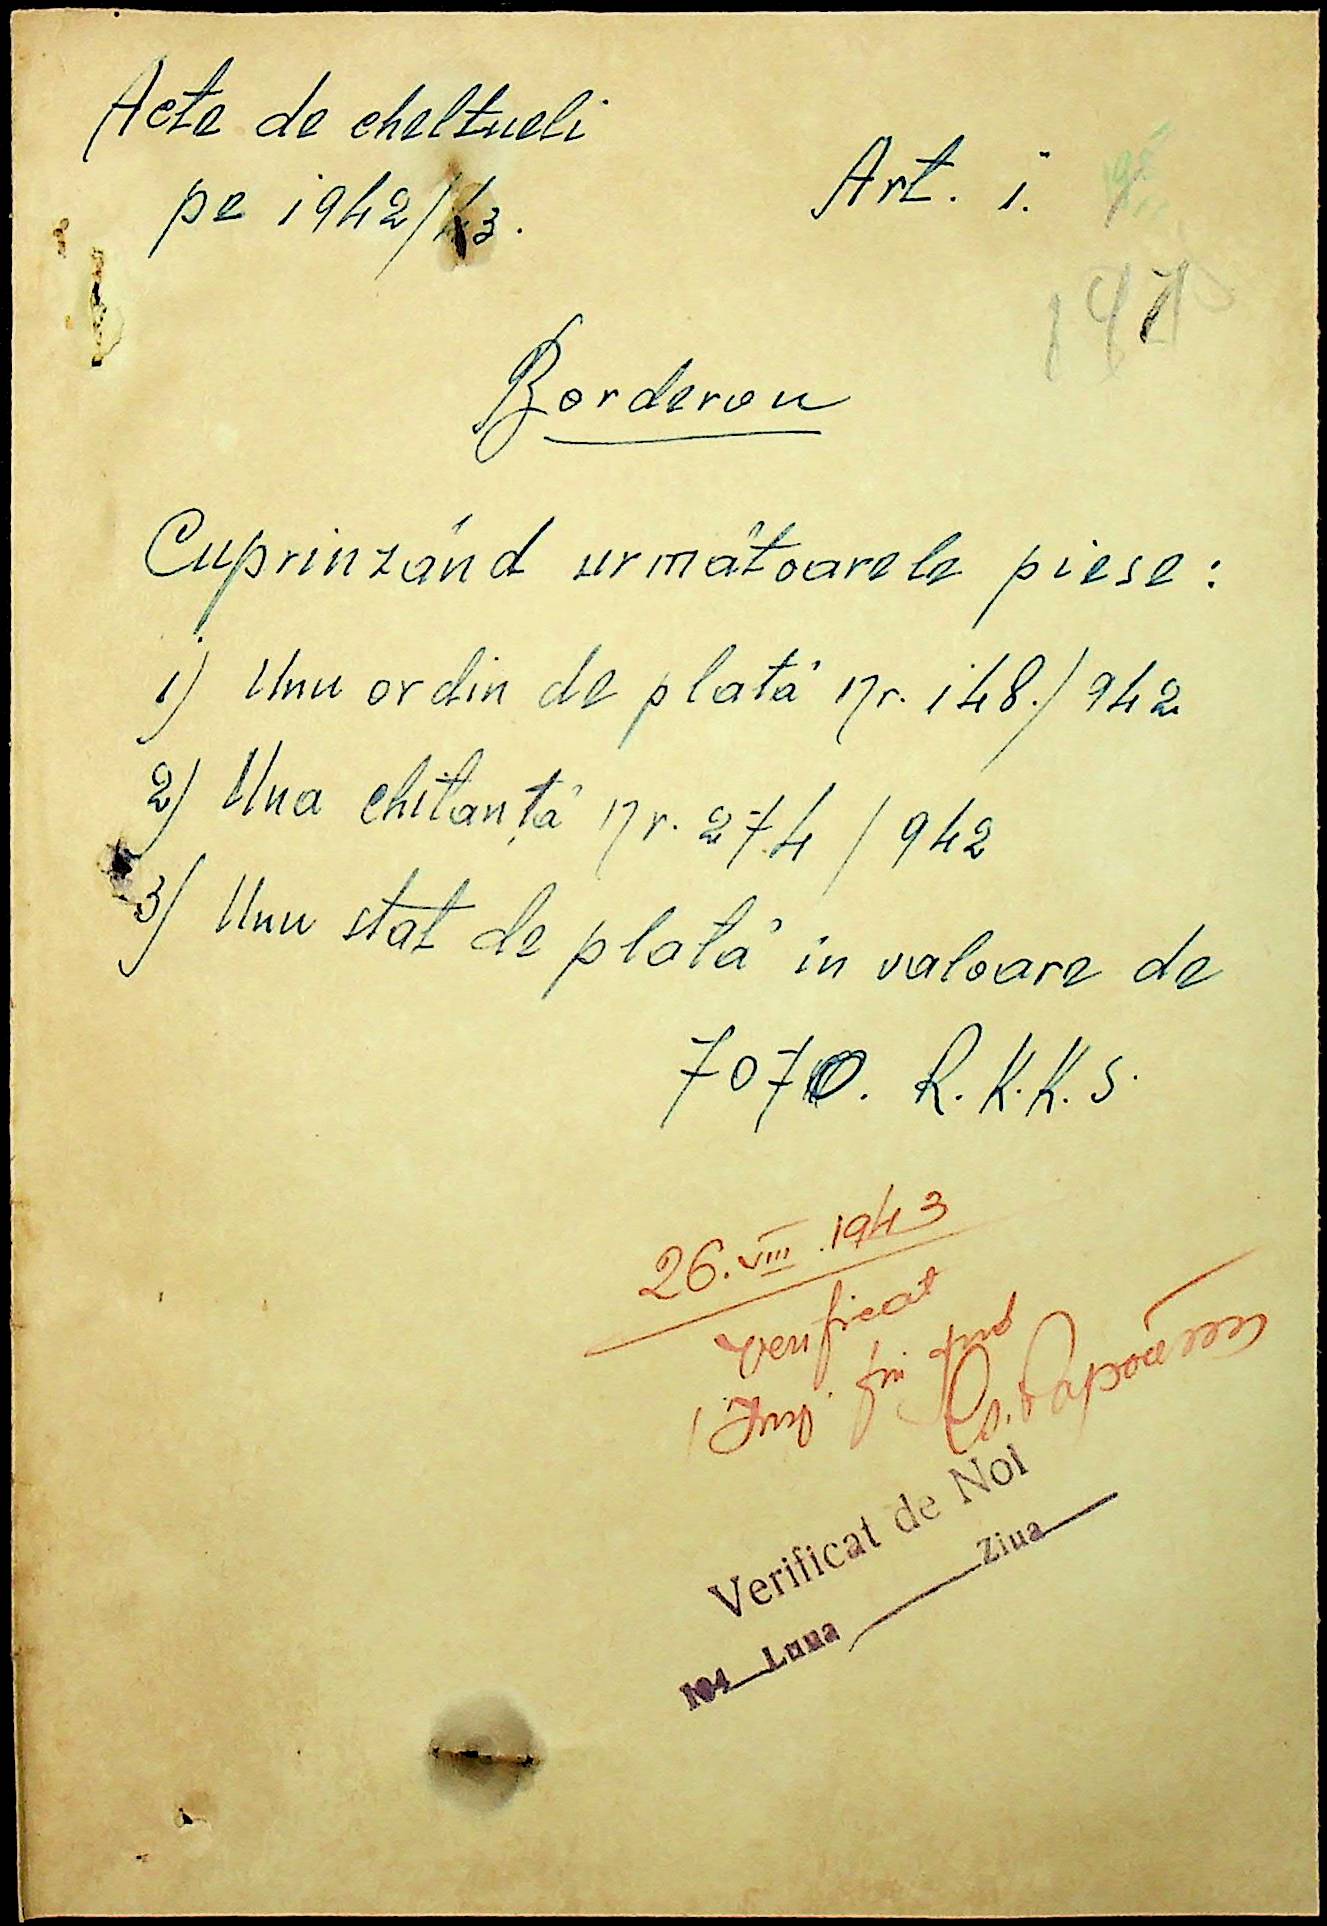 Acte de cheltueli
pe 1942/43.
Art. 1.
Borderou
Cuprinzând următoarele piese:
1) Unu ordin de plată nr. 148./942
2) Una chitanță nr. 274/942
3) Unu stat de plată în valoare de
7070. R.K.K.S.
26.VIII.1943
Verificat
Insp. fin
Verificat de Noi
194 Luna Ziua